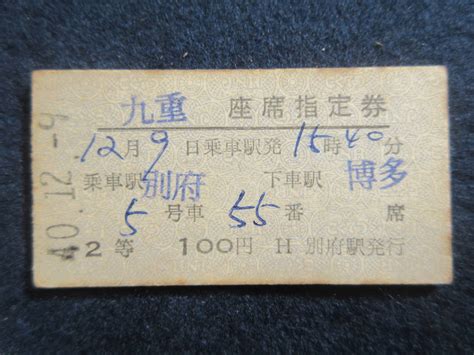 九重 座席指定券
12月9日乗車駅発15時40分
乗車駅 別府 下車駅 博多
5号車 55番 席
2等 100円 H 別府駅発行
40.12.-9